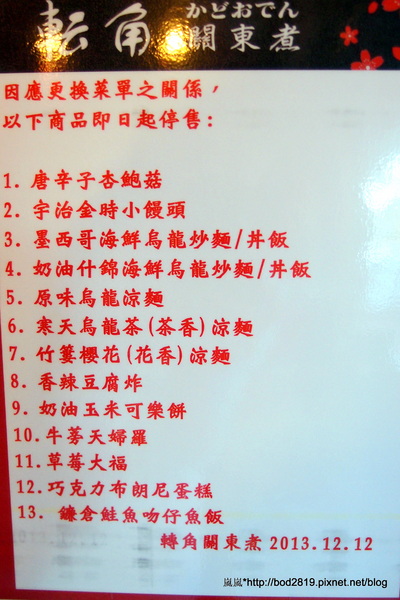 転角
かどおでん
關東煮
因應更換菜單之關係，
以下商品即日起停售：
1. 唐辛子杏鮑菇
2. 宇治金時小饅頭
3. 墨西哥海鮮烏龍炒麵/丼飯
4. 奶油什錦海鮮烏龍炒麵/丼飯
5. 原味烏龍涼麵
6. 寒天烏龍茶(茶香)涼麵
7. 竹簍櫻花(花香)涼麵
8. 香辣豆腐炸
9. 奶油玉米可樂餅
10.牛蒡天婦羅
11.草莓大福
12.巧克力布朗尼蛋糕
13. 鎌倉鮭魚吻仔魚飯
轉角關東煮 2013.12.12
嵐嵐*http://bod2819.pixnet.net/blog